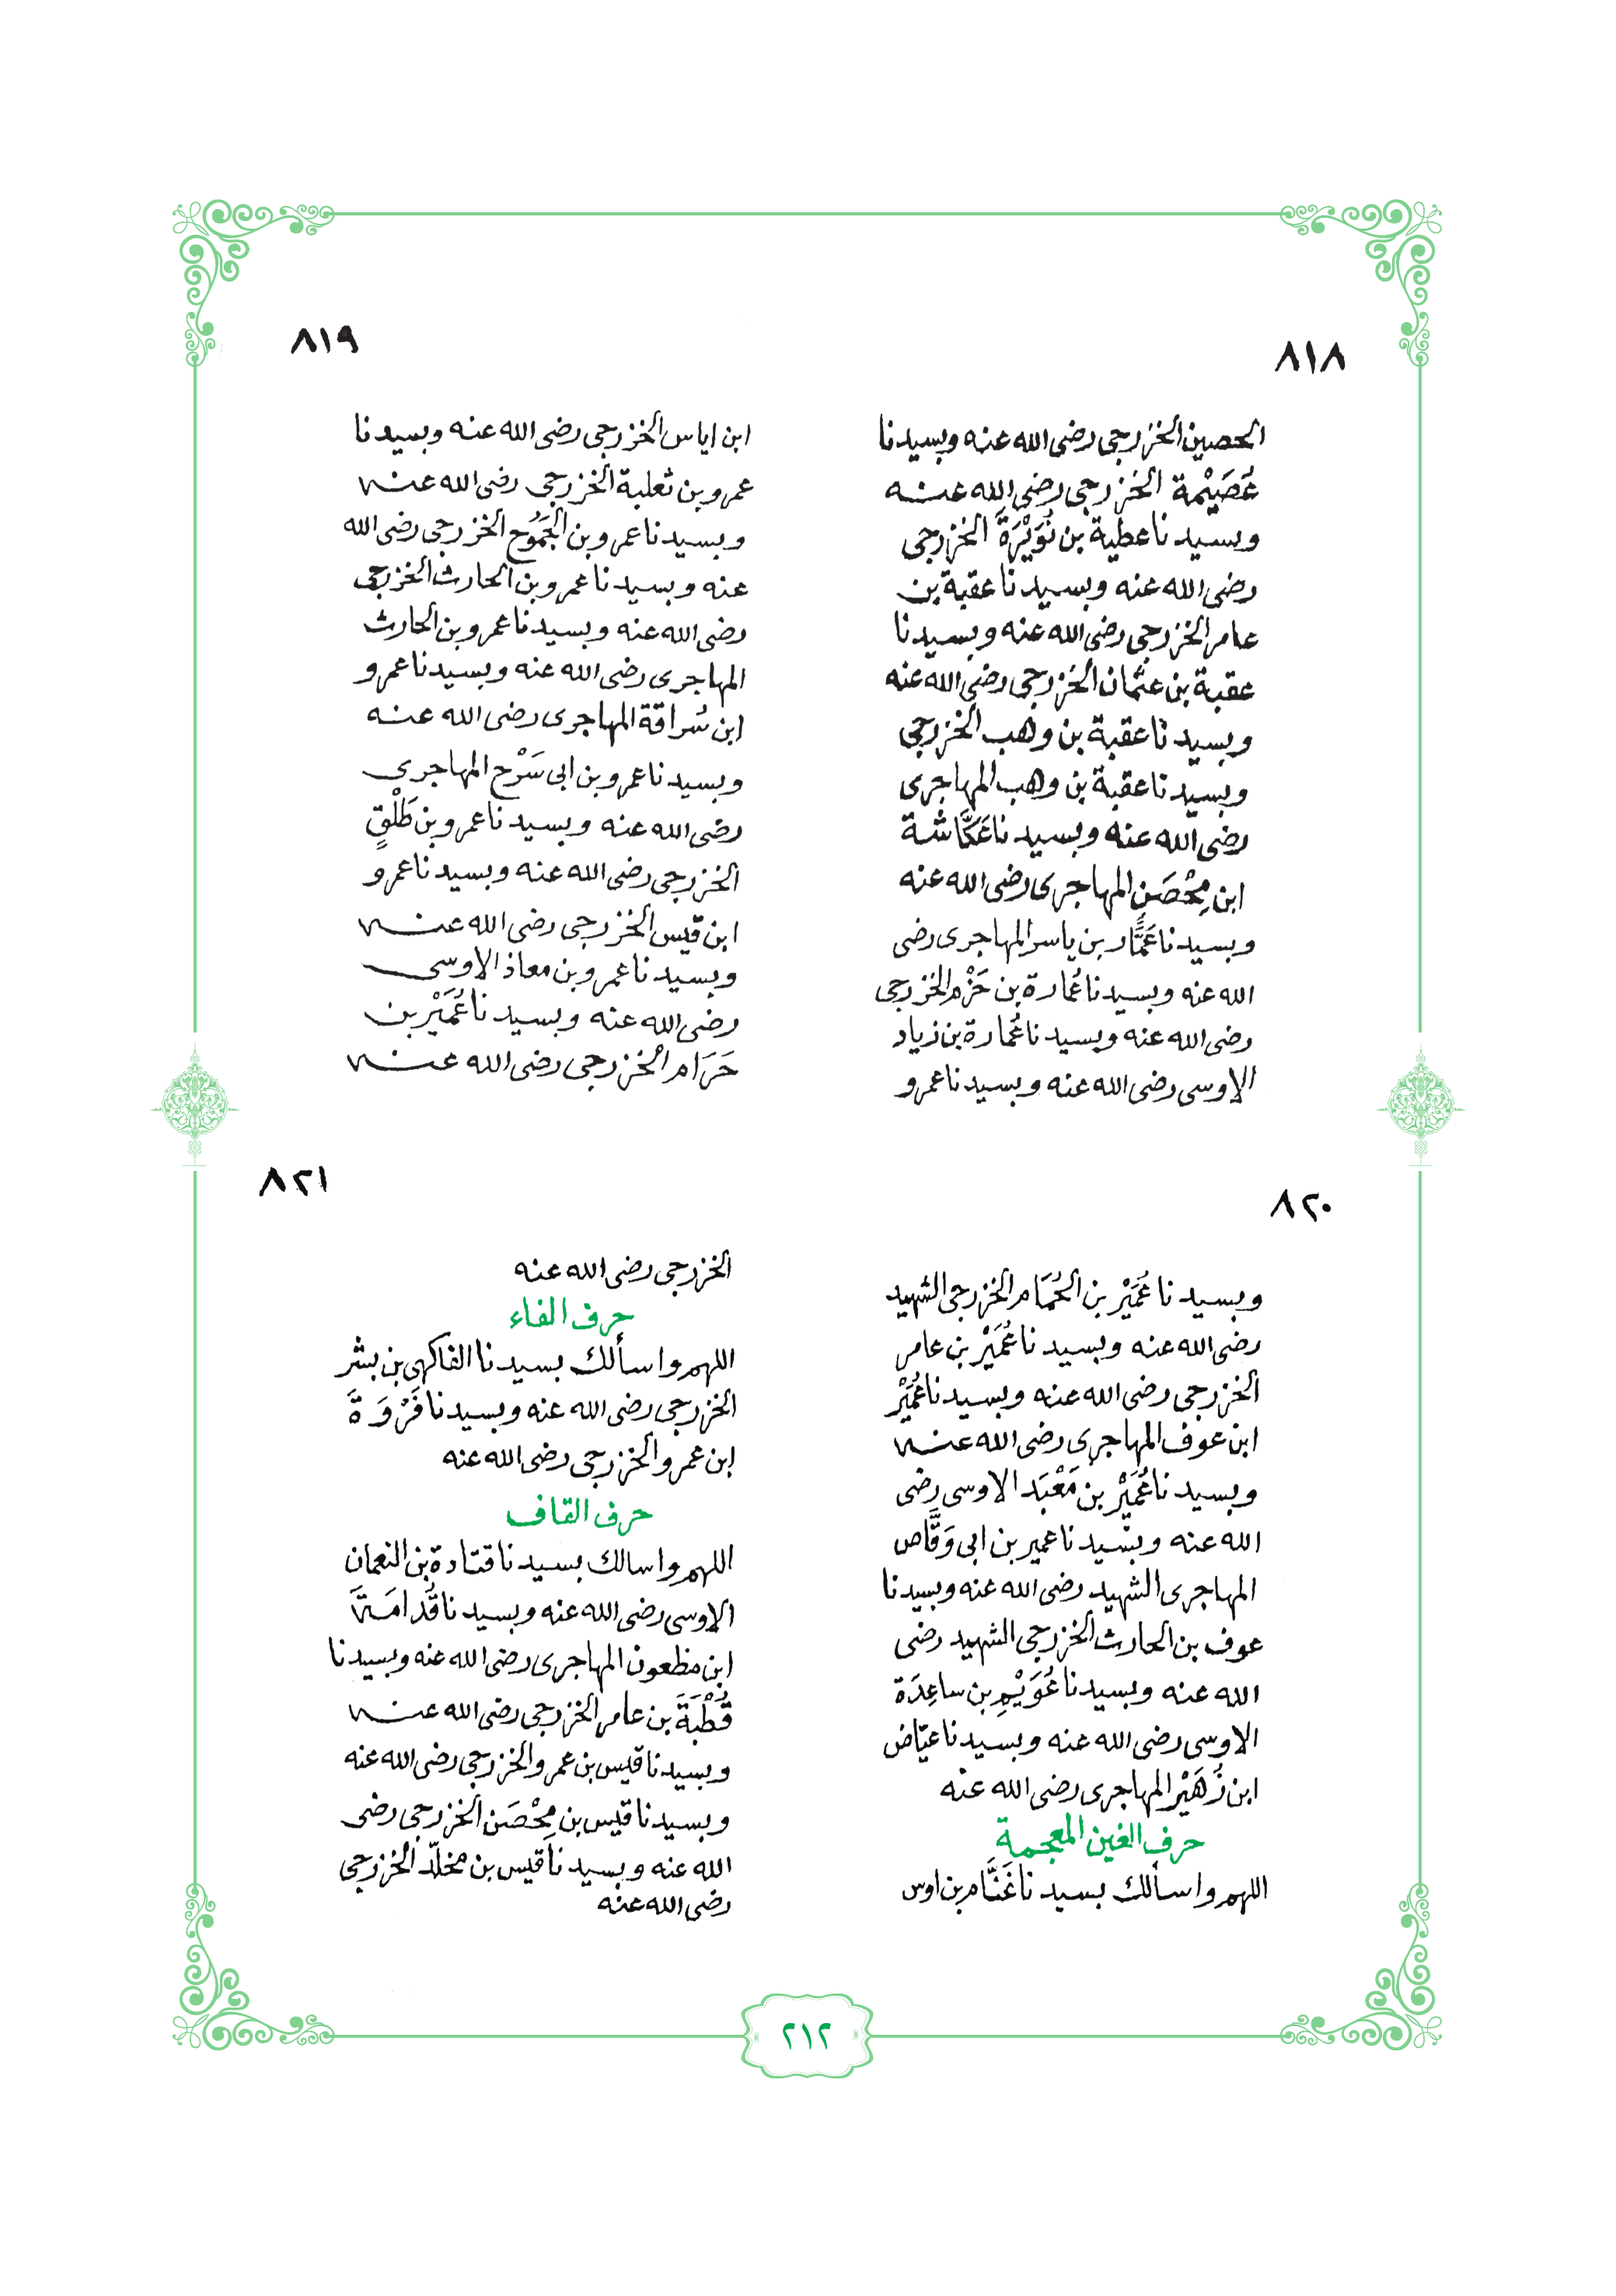 ٨١٨
الحصين الخزرجى رضى الله عنه وبسيدنا
عُصَيْمة الخزرجى رضى الله عنه
وبسيدنا عطية بن نُوَيْرَةَ الخزرجى
رضى الله عنه وبسيدنا عقبة بن
عامر الخزرجى رضى الله عنه وبسيدنا
عقبة بن عثمان الخزرجى رضى الله عنه
وبسيدنا عقبة بن وهب الخزرجى
وبسيدنا عقبة بن وهب المهاجرى
رضى الله عنه وبسيدنا عَكَّاشة
ابن مِحْصَنٍ المهاجرى رضى الله عنه
وبسيدنا عَمَّار بن ياسر المهاجرى رضى
الله عنه وبسيدنا عُمارة بن حَزْم الخزرجى
رضى الله عنه وبسيدنا عُمارة بن زياد
الاوسى رضى الله عنه وبسيدنا عمرو
٨١٩
ابن اياس الخزرجى رضى الله عنه وبسيدنا
عمرو بن ثعلبة الخزرجى رضى الله عنه
وبسيدنا عمرو بن الجَمُوح الخزرجى رضى الله
عنه وبسيدنا عمرو بن الحارث الخزرجى
رضى الله عنه وبسيدنا عمرو بن الحارث
المهاجرى رضى الله عنه وبسيدنا عمرو
ابن سُراقة المهاجرى رضى الله عنه
وبسيدنا عمرو بن ابى سَرْح المهاجرى
رضى الله عنه وبسيدنا عمرو بن طَلْقٍ
الخزرجى رضى الله عنه وبسيدنا عمرو
ابن قيس الخزرجى رضى الله عنه
وبسيدنا عمرو بن معاذ الاوسى
رضى الله عنه وبسيدنا عُمَيْر بن
حَرَام الخزرجى رضى الله عنه
٨٢٠
وبسيدنا عُمَيْر بن الحُمَام الخزرجى الشهيد
رضى الله عنه وبسيدنا عُمَيْر بن عامر
الخزرجى رضى الله عنه وبسيدنا عُمَيْر
ابن عوف المهاجرى رضى الله عنه
وبسيدنا عُمَيْر بن مَعْبَد الاوسى رضى
الله عنه وبسيدنا عمير بن ابى وَقَّاص
المهاجرى الشهيد رضى الله عنه وبسيدنا
عوف بن الحارث الخزرجى الشهيد رضى
الله عنه وبسيدنا عُوَيْمِ بن ساعِدَة
الاوسى رضى الله عنه وبسيدنا عيّاض
ابن زُهَيْر المهاجرى رضى الله عنه
حرف الغين المعجمة
اللهم واسألك بسيدنا غَنَّام بن اوس
٨٢١
الخزرجى رضى الله عنه
حرف الفاء
اللهم واسألك بسيدنا الفاكهى بن بشر
الخزرجى رضى الله عنه وبسيدنا فَرْوَةَ
ابن عمرو الخزرجى رضى الله عنه
حرف القاف
اللهم واسالك بسيدنا قتادة بن النعمان
الاوسى رضى الله عنه وبسيدنا قُدامَةَ
ابن مظعون المهاجرى رضى الله عنه وبسيدنا
قُطْبَةَ بن عامر الخزرجى رضى الله عنه
وبسيدنا قيس بن عمرو الخزرجى رضى الله عنه
وبسيدنا قيس بن مِحْصَن الخزرجى رضى
الله عنه وبسيدنا قيس بن مخلّد الخزرجى
رضى الله عنه
٢١٢